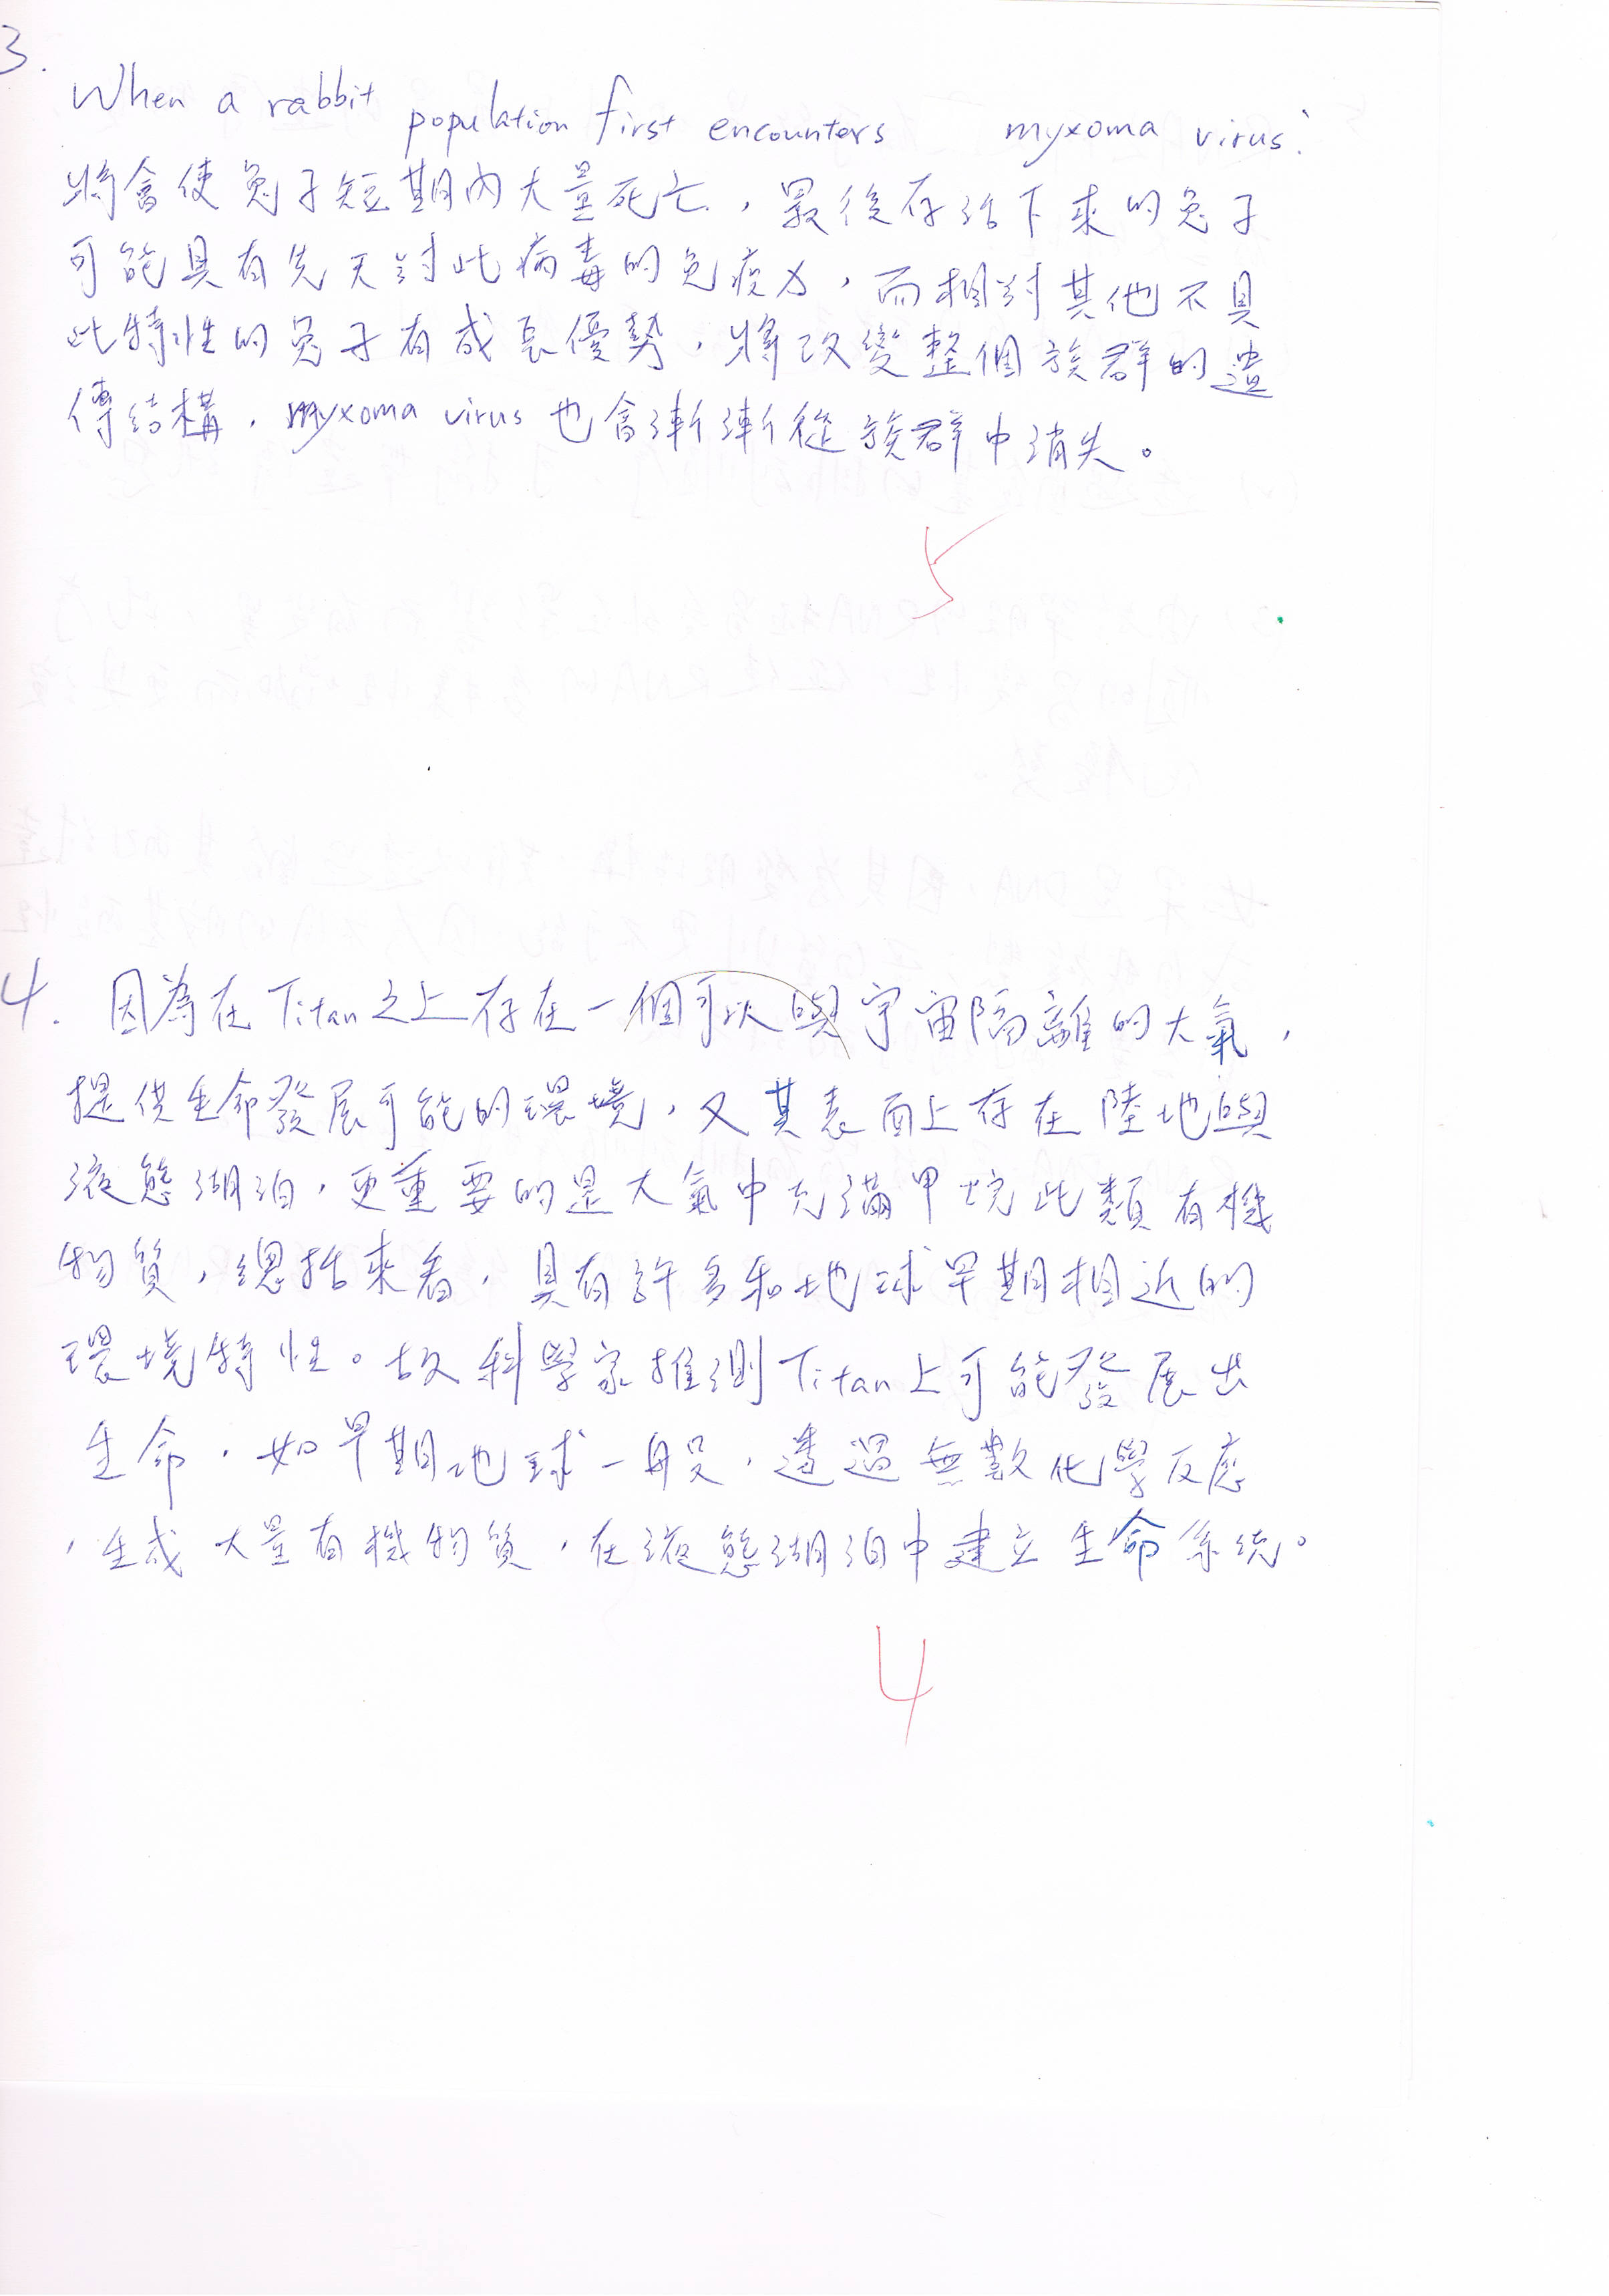 3.
When a rabbit population first encounters myxoma virus:
將會使兔子短期內大量死亡,最後存活下來的兔子
可能具有先天對此病毒的免疫力,而相對其他不具
此特性的兔子有成長優勢,將改變整個族群的遺
傳結構,myxoma virus也會漸漸從族群中消失。
5
4. 因為在Titan之上存在一個可以與宇宙隔離的大氣,
提供生命發展可能的環境,又其表面上存在陸地與
液態湖泊,更重要的是大氣中充滿甲烷此類有機
物質,總括來看,具有許多和地球早期相近的
環境特性。故科學家推測Titan上可能發展出
生命,如早期地球一般,透過無數化學反應
,生成大量有機物質,在液態湖泊中建立生命系統。
4